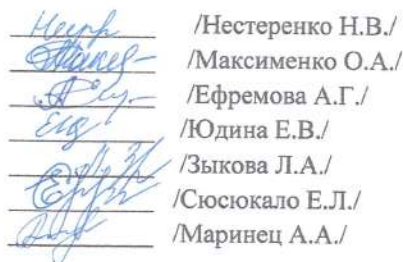 /Нестеренко Н.В./
/Максименко О.А./
/Ефремова А.Г./
/Юдина Е.В./
/Зыкова Л.А./
/Сюсюкало Е.Л./
/Маринец А.А./